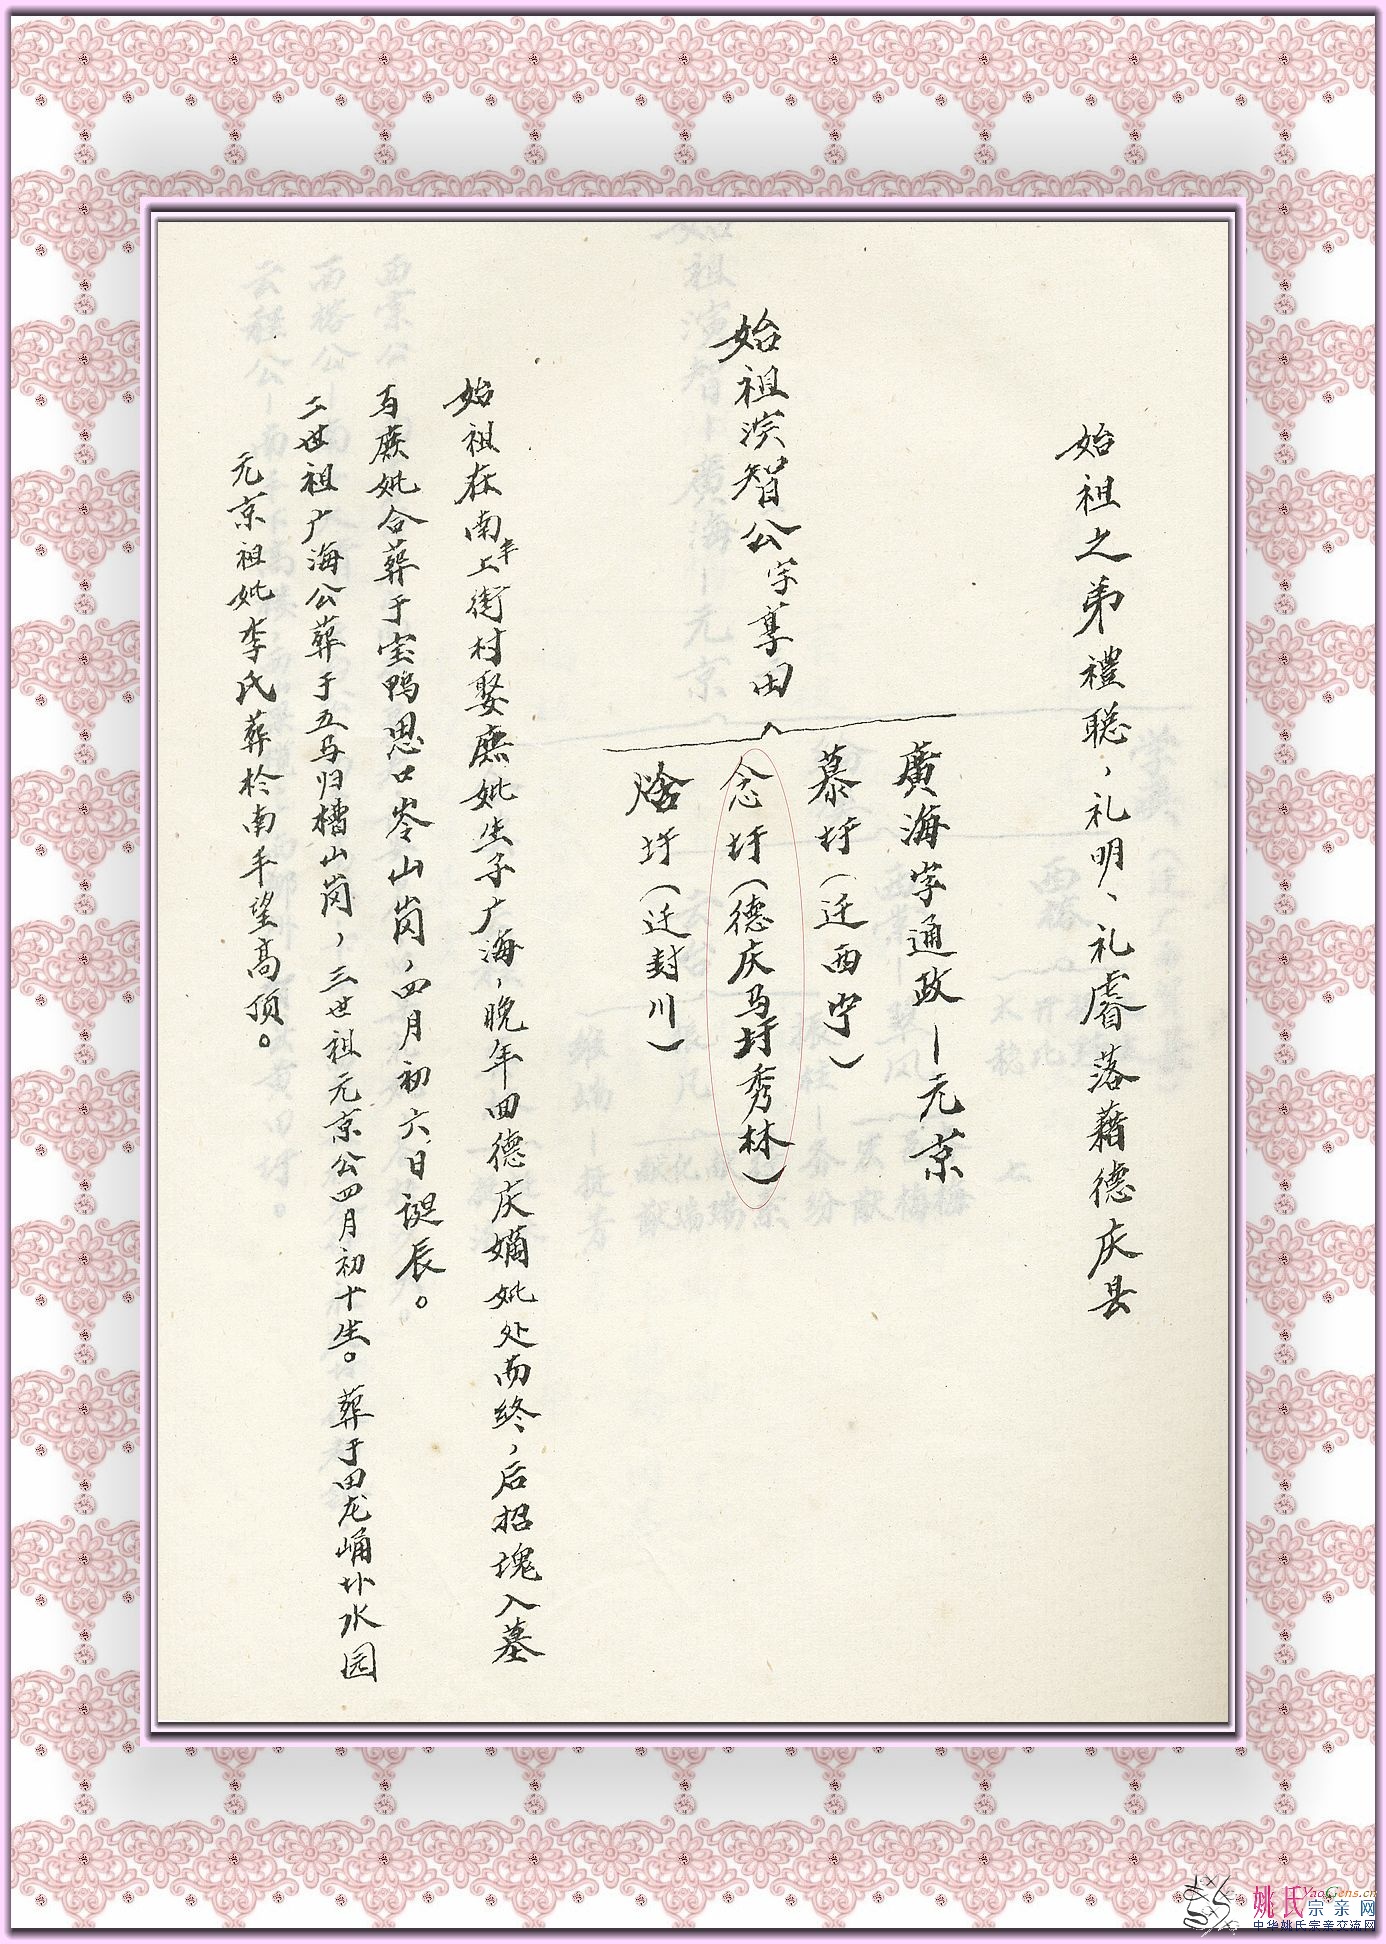 始祖之弟禮聪，礼明、礼睿落藉德庆县
始祖演智公字享田
廣海字通政—元京
慕圩（迁西宁）
念圩（德庆马圩秀林）
圩（迁封川）
始祖在南丰上街村娶庶妣生子广海，晚年回德庆嫡妣处而终，后招魂入墓
与庶妣合葬于宝鸭思口岺山岗，四月初六日诞辰。
二世祖广海公葬于五马归槽山岗，三世祖元京公四月初十生。葬于田龙水园
元京祖妣李氏葬於南丰望高顶。
姚氏宗亲网
YaoGens.cn
中华姚氏宗亲交流网